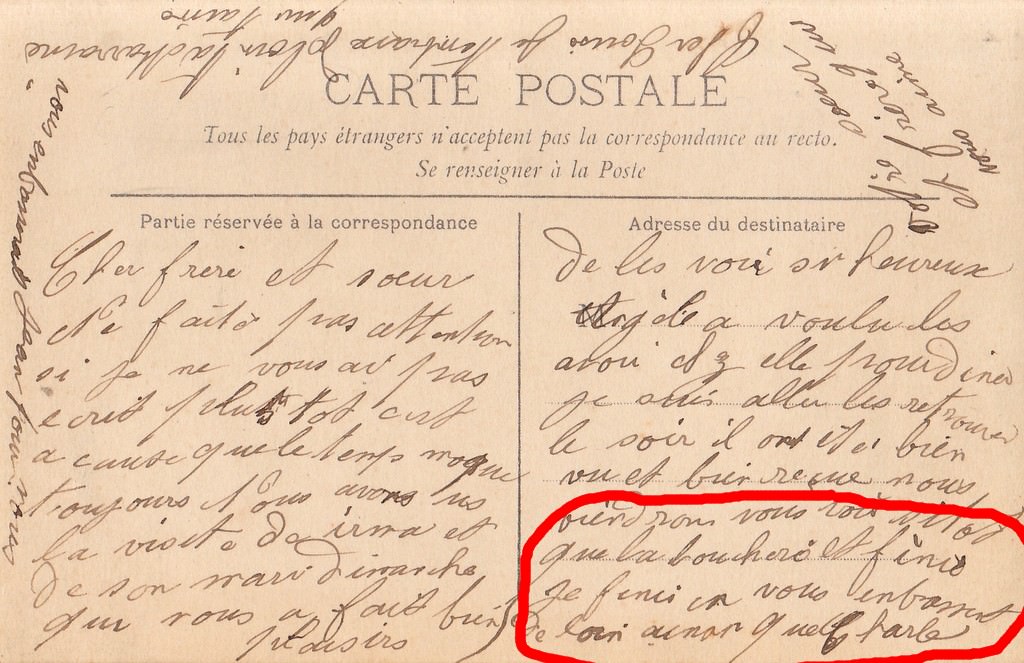 Cher Sousi je t'embrasse
CARTE POSTALE
Tous les pays étrangers n'acceptent pas la correspondance au recto.
Se renseigner à la Poste
Partie réservée à la correspondance
Cher frere et sœur
Ne faite pas attention
si je ne vous ai pas
ecrit plus tot cest
a cause que le temps manque
toujours Nous avons us
la visite de irma et
de son mari dimanche
qui nous a fait bien
plaisirs
Adresse du destinataire
de les voir si heureux
Angele a voulu les
avoi chez elle pour diner
je suis aller les retrouver
le soir il ont été bien
vu et bien reçue nous
viendrons vous voir sitot
que la bouchere et finie
je fini en vous enbrassent
de loin ainsi que Charle
vous enbrasserais Jean pour nous